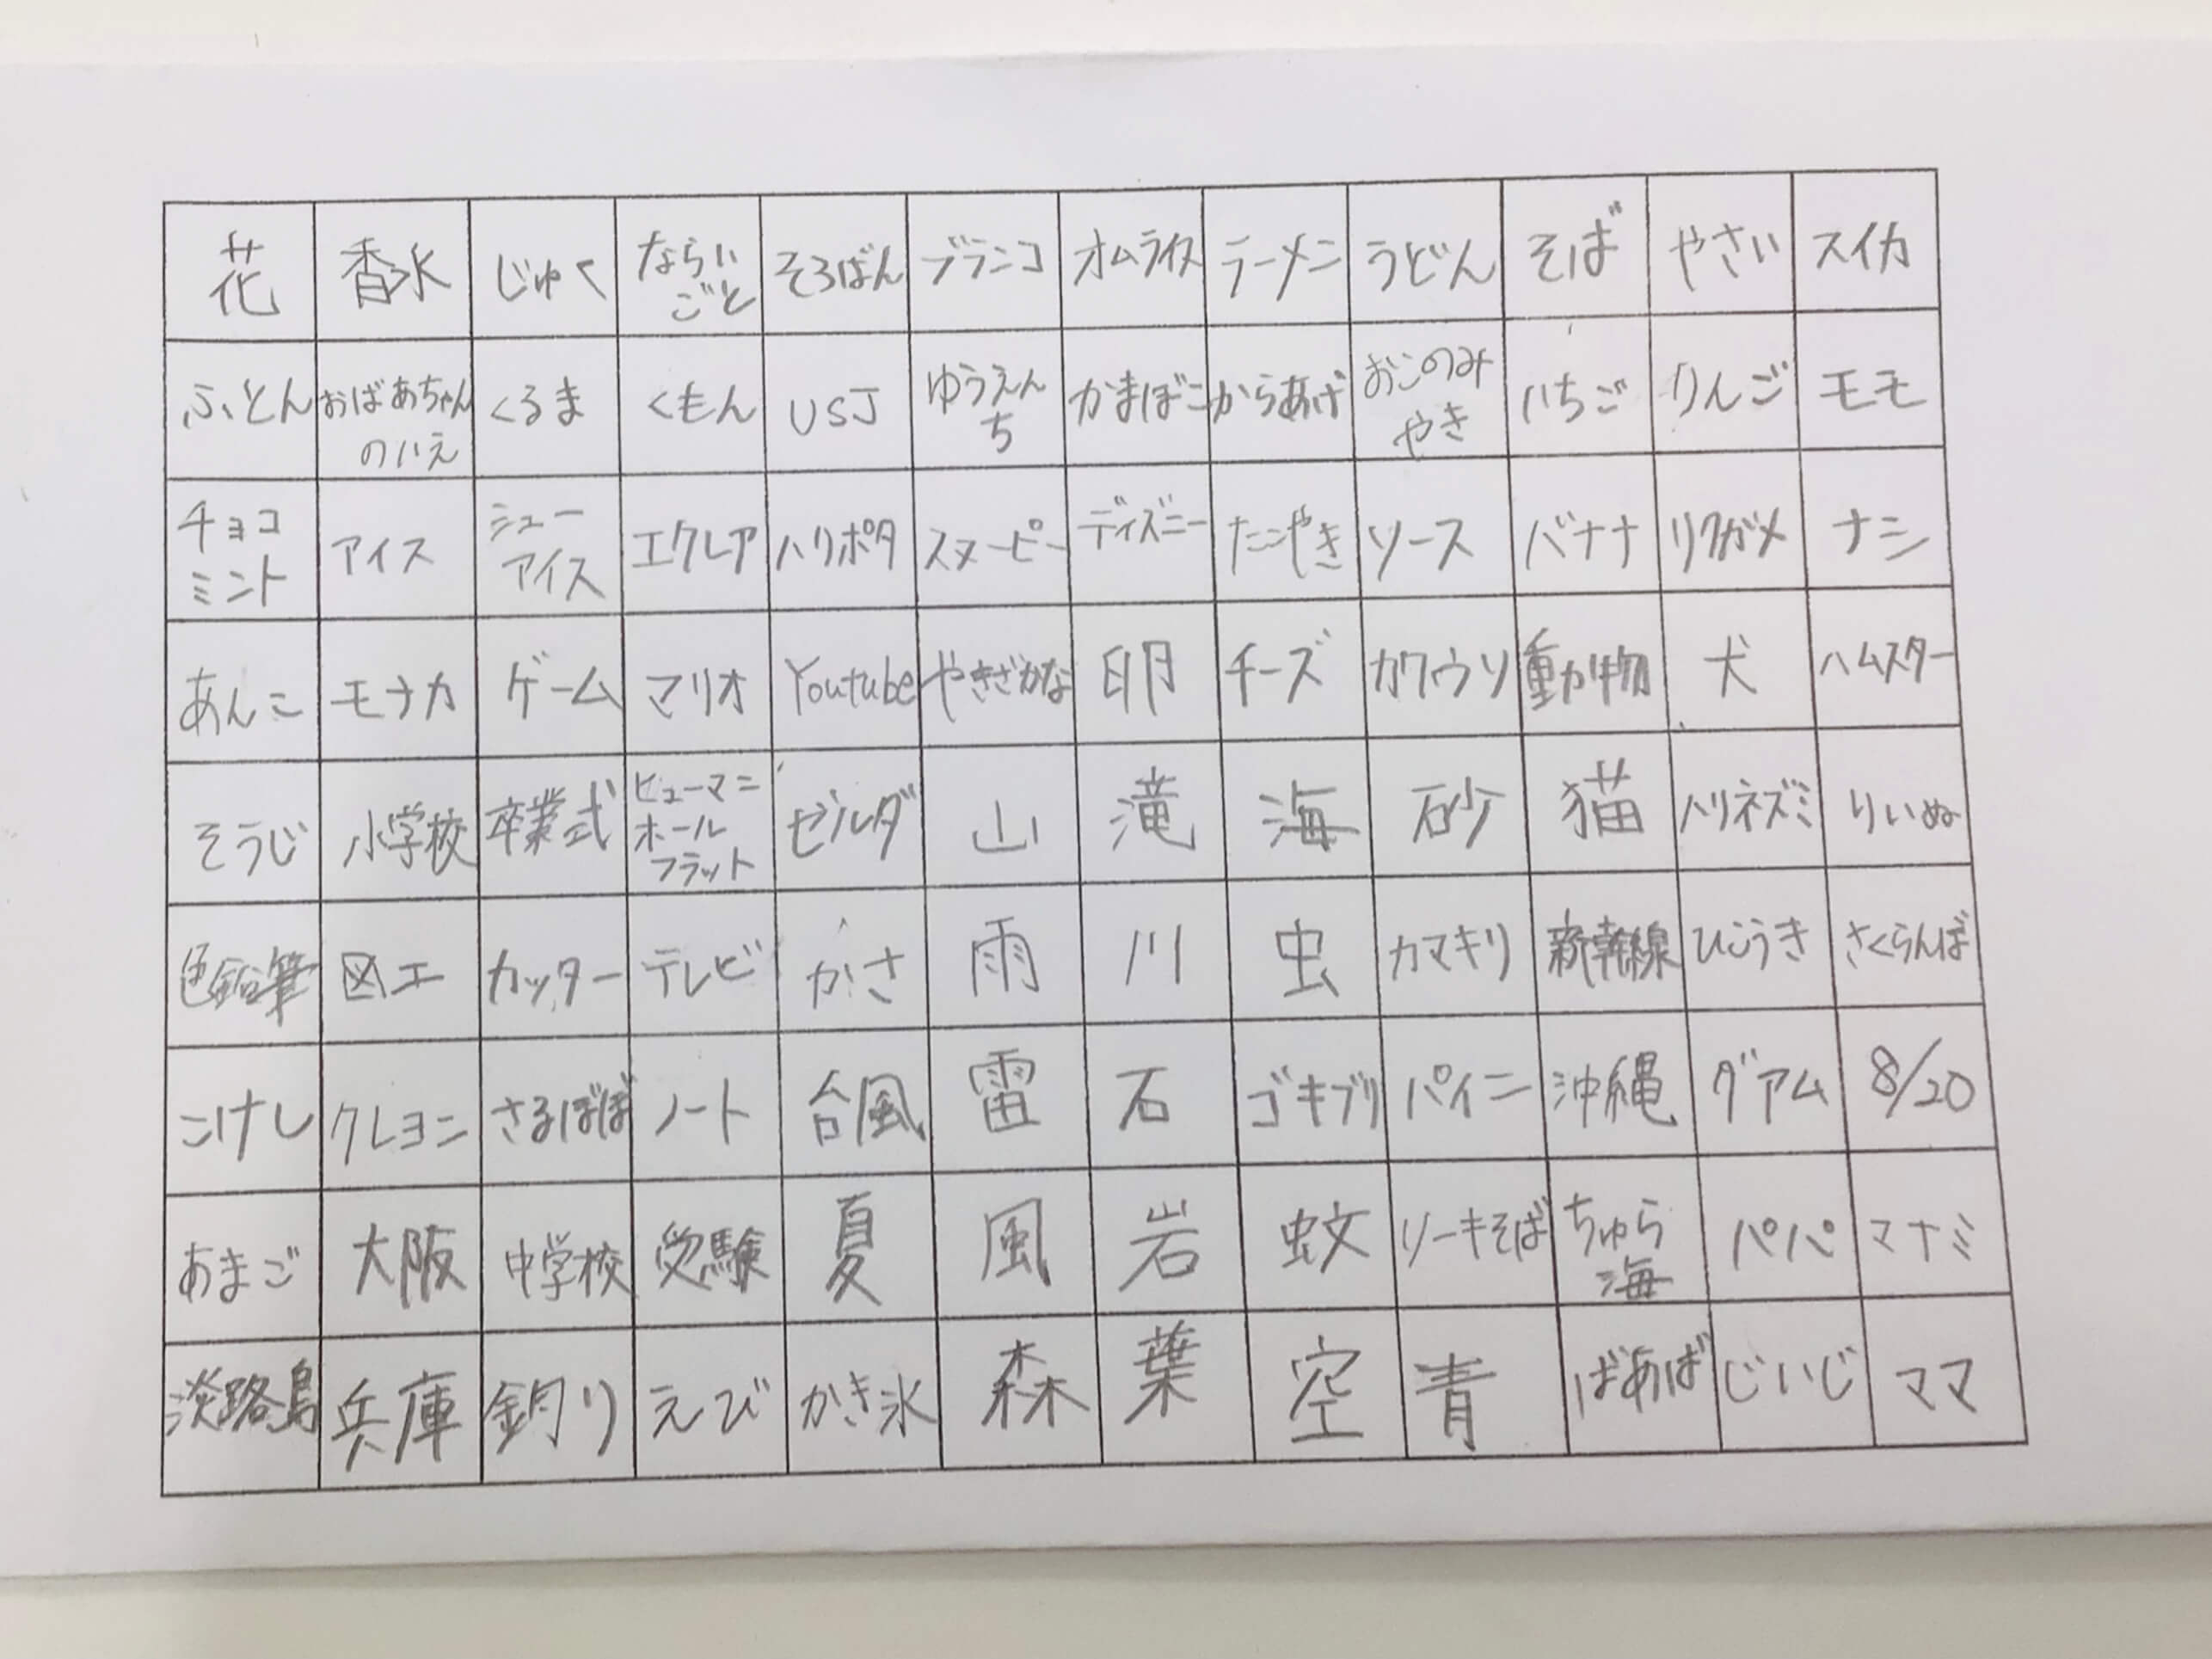 花 香水 じゅく ならいごと そろばん ブランコ オムライス ラーメン うどん そば やさい スイカ
ふとん おばあちゃんのいえ くるま くもん USJ ゆうえんち かまぼこ からあげ おこのみやき いちご りんご モモ
チョコミント アイス シューアイス エクレア ハリポタ スヌーピー ディズニー たこやき ソース バナナ リクガメ ナシ
あんこ モナカ ゲーム マリオ Youtube やきざかな 卵 チーズ カワウソ 動物 犬 ハムスター
そうじ 小学校 卒業式 ヒューマンホールフラット ゼルダ 山 滝 海 砂 猫 ハリネズミ りいぬ
色鉛筆 図工 カッター テレビ かさ 雨 川 虫 カマキリ 新幹線 ひこうき さくらんぼ
こけし クレヨン さるぼぼ ノート 台風 雷 石 ゴキブリ パイン 沖縄 グアム 8/20
あまご 大阪 中学校 受験 夏 風 岩 蚊 ソーキそば ちゅら海 パパ マナミ
淡路島 兵庫 釣り えび かき氷 森 葉 空 青 ばあば じいじ ママ